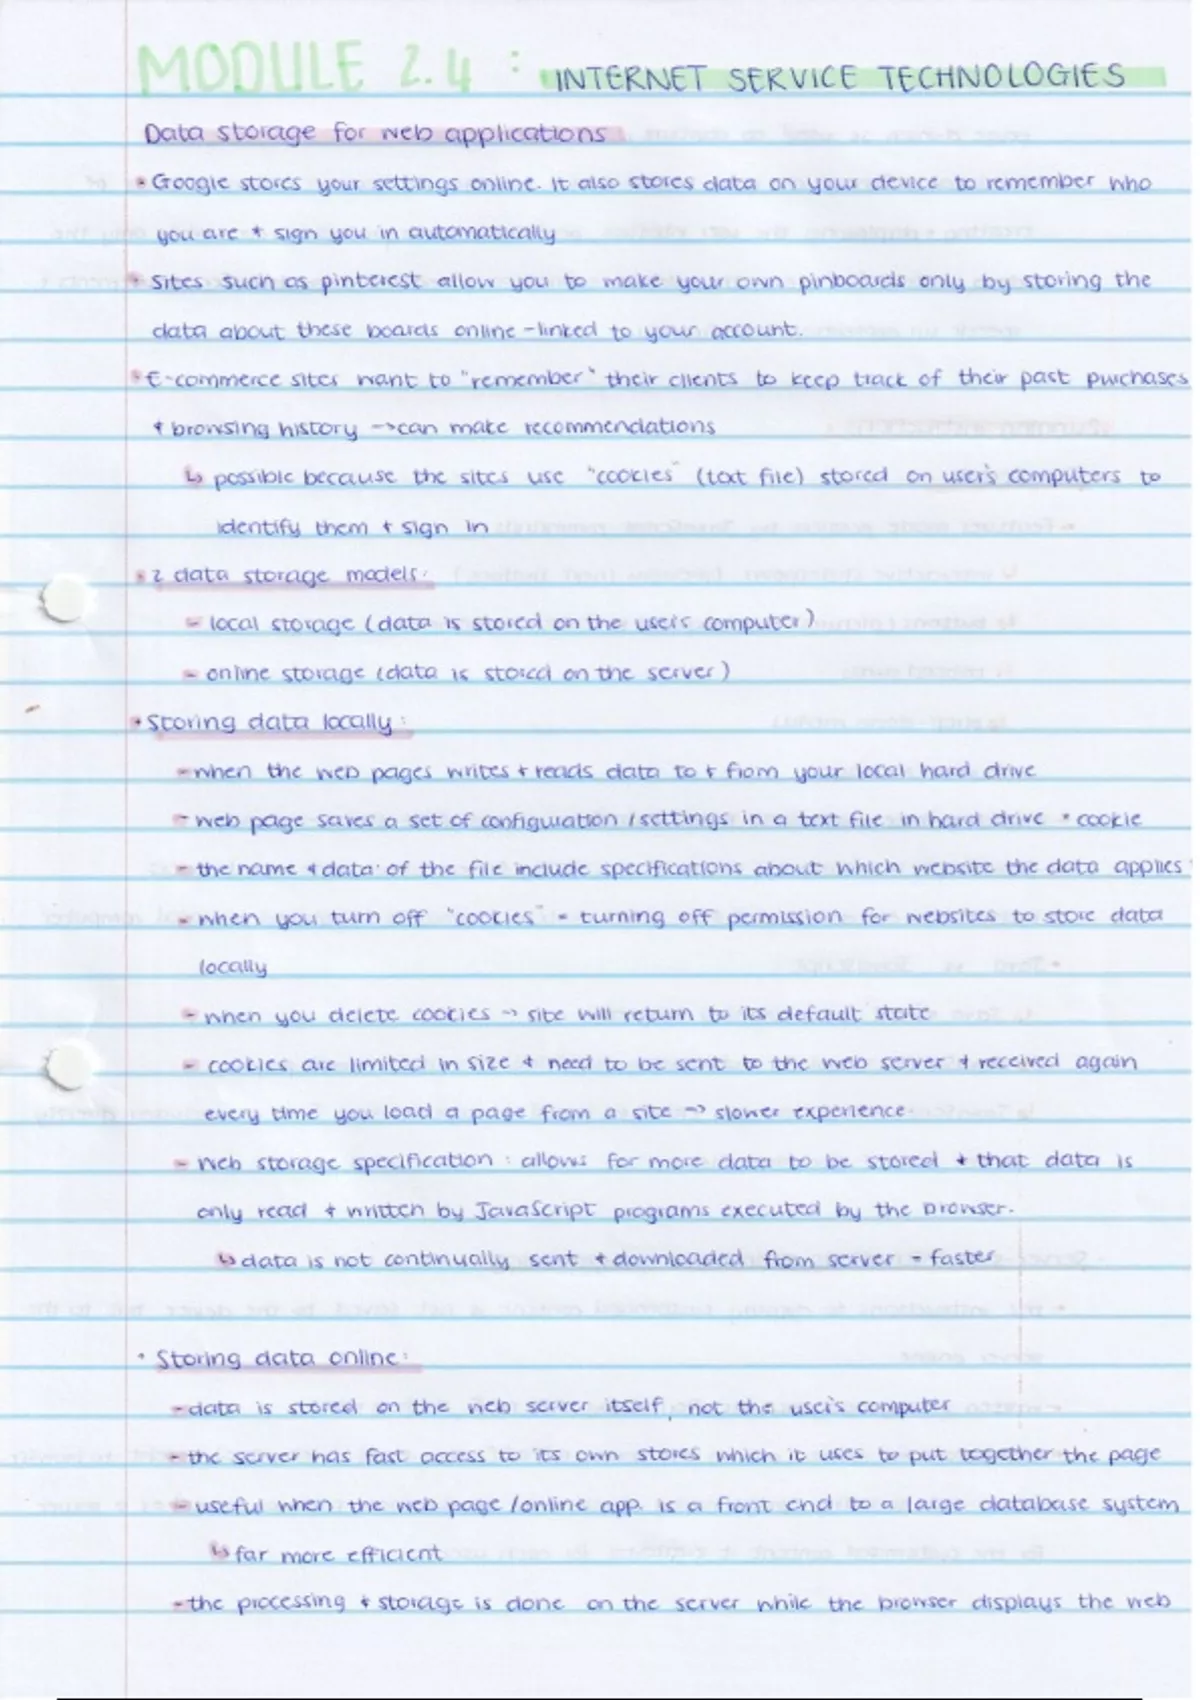 MODULE 2.4 : INTERNET SERVICE TECHNOLOGIES
Data storage for web applications
• Google stores your settings online. It also stores data on your device to remember who
you are + sign you in automatically
• Sites such as pinterest allow you to make your own pinboards only by storing the
data about these boards online - linked to your account.
• E-commerce sites want to "remember" their clients to keep track of their past purchases
+ browsing history → can make recommendations
↳ possible because the sites use "cookies" (text file) stored on user's computers to
identify them + sign in
• 2 data storage models:
- local storage (data is stored on the user's computer)
- online storage (data is stored on the server)
• Storing data locally:
- when the web pages writes + reads data to + from your local hard drive
- web page saves a set of configuration / settings in a text file in hard drive • cookie
- the name + data of the file include specifications about which website the data applies
- when you turn off "cookies" = turning off permission for websites to store data
locally
- when you delete cookies → site will return to its default state
- cookies are limited in size + need to be sent to the web server + received again
every time you load a page from a site → slower experience
- Web storage specification : allows for more data to be stored + that data is
only read + written by JavaScript programs executed by the browser.
↳ data is not continually sent + downloaded from server - faster
• Storing data online:
- data is stored on the web server itself, not the user's computer
- the server has fast access to its own stores which it uses to put together the page
- useful when the web page / online app. is a front end to a large database system
↳ far more efficient
- the processing + storage is done on the server while the browser displays the web